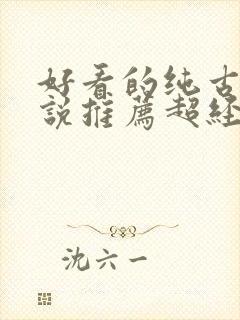 好看的纯古
说推薦超经
沈六一